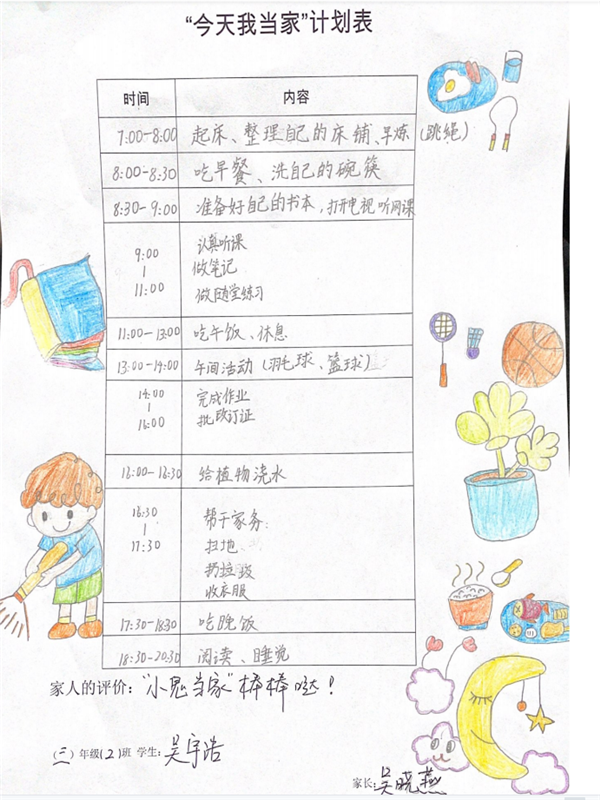 “今天我当家”计划表
时间 内容
7:00-8:00 起床、整理自己的床铺、早炼(跳绳)
8:00-8:30 吃早餐、洗自己的碗筷
8:30-9:00 准备好自己的书本，打开电视听网课
9:00 认真听课
| 做笔记
11:00 做随堂练习
11:00-13:00 吃午饭、休息
13:00-14:00 午间活动(羽毛球、篮球)
14:00 完成作业
| 批改订证
16:00
16:00-16:30 给植物浇水
16:30 帮干家务:
| 扫地
17:30 扔垃圾
收衣服
17:30-18:30 吃晚饭
18:30-20:30 阅读、睡觉
家人的评价：“小鬼当家”棒棒哒！
(三)年级(2)班 学生:吴宇浩
家长:吴晓燕